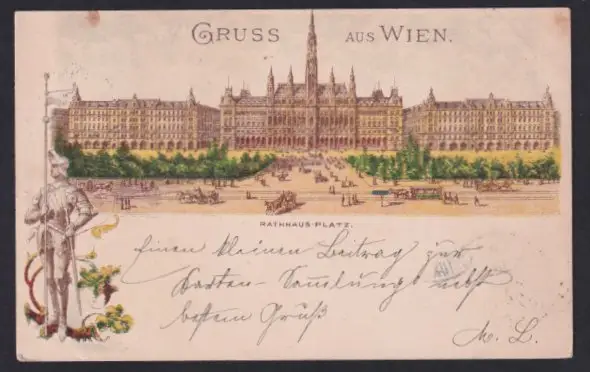 GRUSS AUS WIEN.
RATHHAUS-PLATZ.
Einen kleinen Beitrag zur
Karten-Samlung nebst
bestem Gruß
M. L.